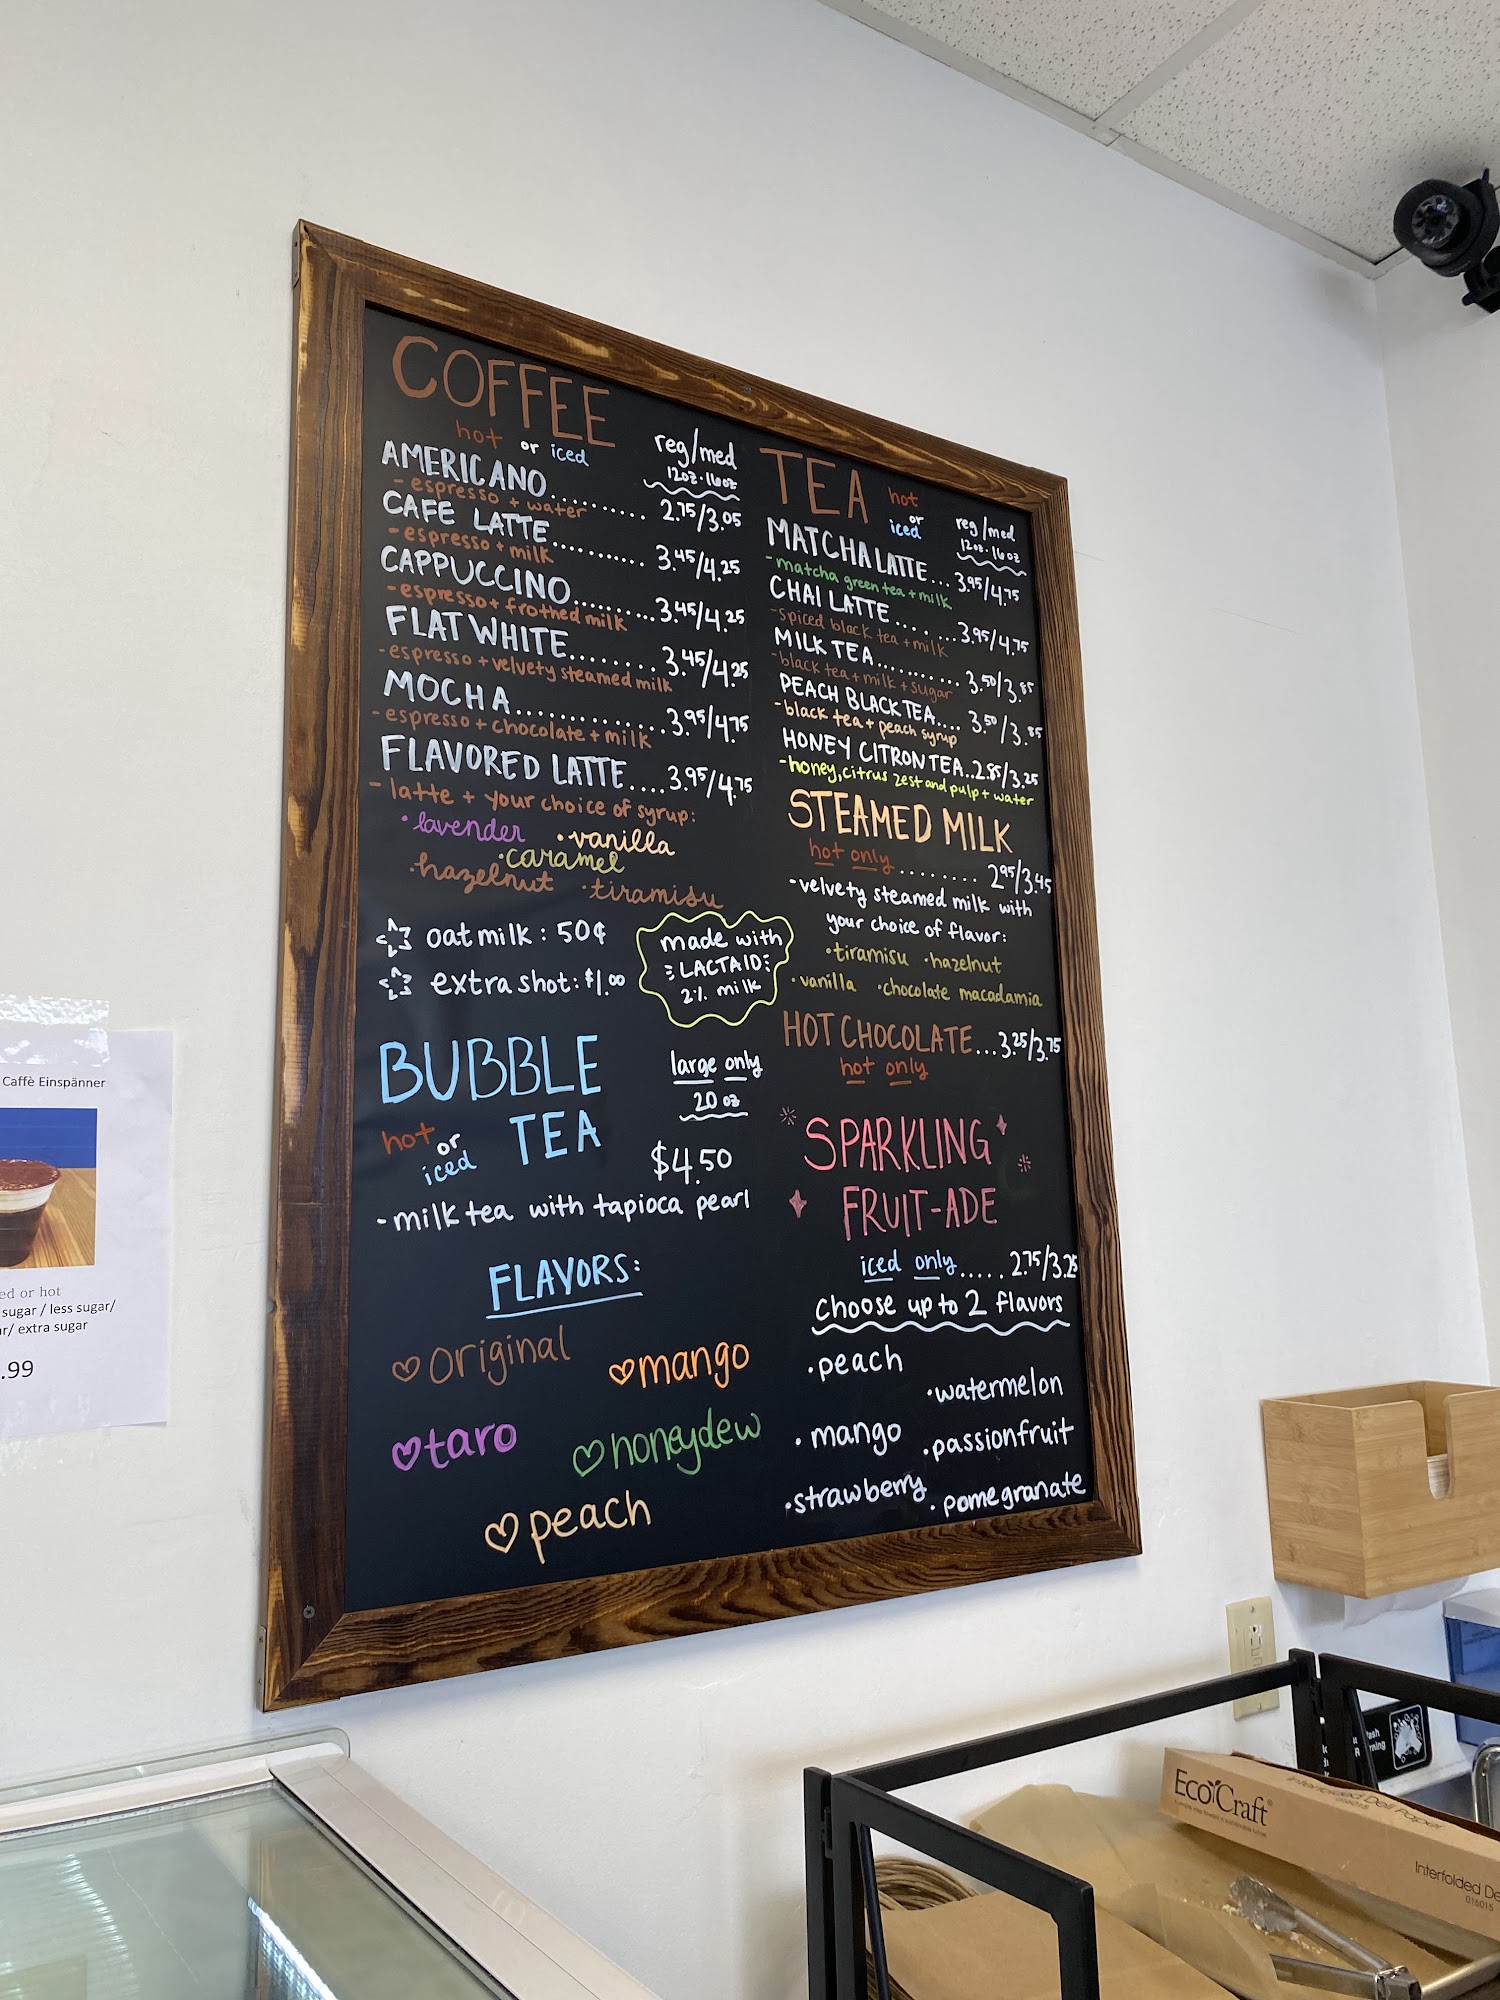 COFFEE
hot or iced
reg/med
12oz · 16oz
AMERICANO.......... 2.75/3.05
- espresso + water
CAFE LATTE........... 3.45/4.25
- espresso + milk
CAPPUCCINO.......... 3.45/4.25
- espresso + frothed milk
FLAT WHITE........ 3.45/4.25
- espresso + velvety steamed milk
MOCHA.............. 3.95/4.75
- espresso + chocolate + milk
FLAVORED LATTE.... 3.95/4.75
- latte + your choice of syrup:
• lavender • vanilla
• caramel
• hazelnut • tiramisu
oat milk : 50¢
extra shot: $1.00
made with
LACTAID
2% milk
BUBBLE
TEA
hot or
iced
large only
20 oz
$4.50
- milk tea with tapioca pearl
FLAVORS:
original
mango
taro
honeydew
peach
TEA
hot
or
iced
reg/med
12oz · 16oz
MATCHA LATTE... 3.95/4.75
- matcha green tea + milk
CHAI LATTE....... 3.95/4.75
- spiced black tea + milk
MILK TEA........... 3.50/3.85
- black tea + milk + sugar
PEACH BLACK TEA.... 3.50/3.85
- black tea + peach syrup
HONEY CITRON TEA.. 2.85/3.25
- honey, citrus zest and pulp + water
STEAMED MILK
hot only........ 2.95/3.45
• velvety steamed milk with
your choice of flavor:
• tiramisu • hazelnut
• vanilla • chocolate macadamia
HOT CHOCOLATE... 3.25/3.75
hot only
SPARKLING
FRUIT-ADE
iced only..... 2.75/3.25
choose up to 2 flavors
• peach
• watermelon
• mango
• passionfruit
• strawberry
• pomegranate
Caffè Einspänner
ed or hot
sugar / less sugar/
/ extra sugar
.99
ECO CRAFT
Interfolded Deli Paper
016015
Interfolded De
016015